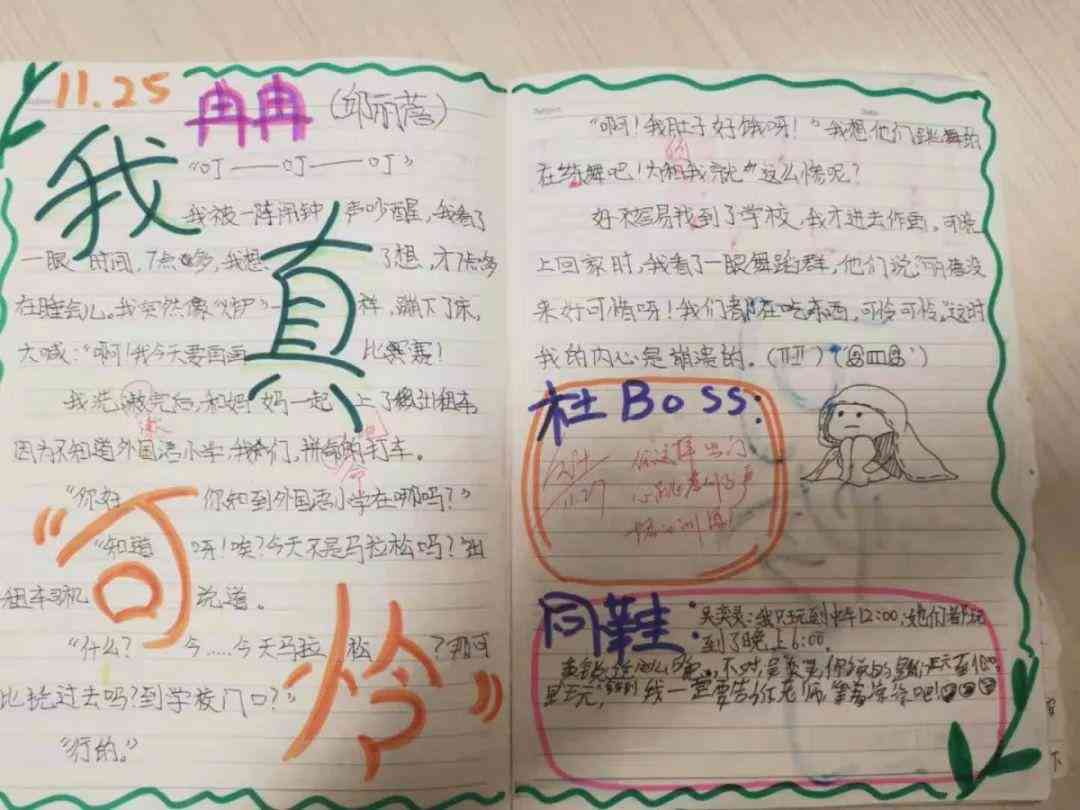 11.25 冉冉 (邱丽蓓)
我真"可怜"
"叮——叮——叮"
我被一阵闹钟声吵醒，我看了
一眼时间，7点多，我想了想，才7点多
在睡会儿。我突然像"炉"一样，蹦下了床，
大喊："啊！我今天要画画比赛赛！
我洗漱完后，和妈妈一起上了出租车
因为不知道外国语小学，我们，拼命的打车。
"你好你知到外国语小学在哪吗？"
"知道呀！唉？今天不是马拉松吗？"出
租车司机说道。
"什么？今……今天马拉松？那可
比绕过去吗？到学校门口？"
"行的。"
"啊！我肚子好饿呀！"我想他们跳舞的
在练舞吧！为啥我就这么惨呢？
好不容易找到了学校，我才进去作画，可晚
上回家时，我看了一眼舞蹈群，他们说"丽蓓没
来好可惜呀！我们都在吃东西，可怜可怜。这时
我的内心是崩溃的。
杜Boss:
11.27
你这样出门
同鞋:
我只玩到中午12:00，她们都玩
到了晚上6:00。
不对，
我一定要告